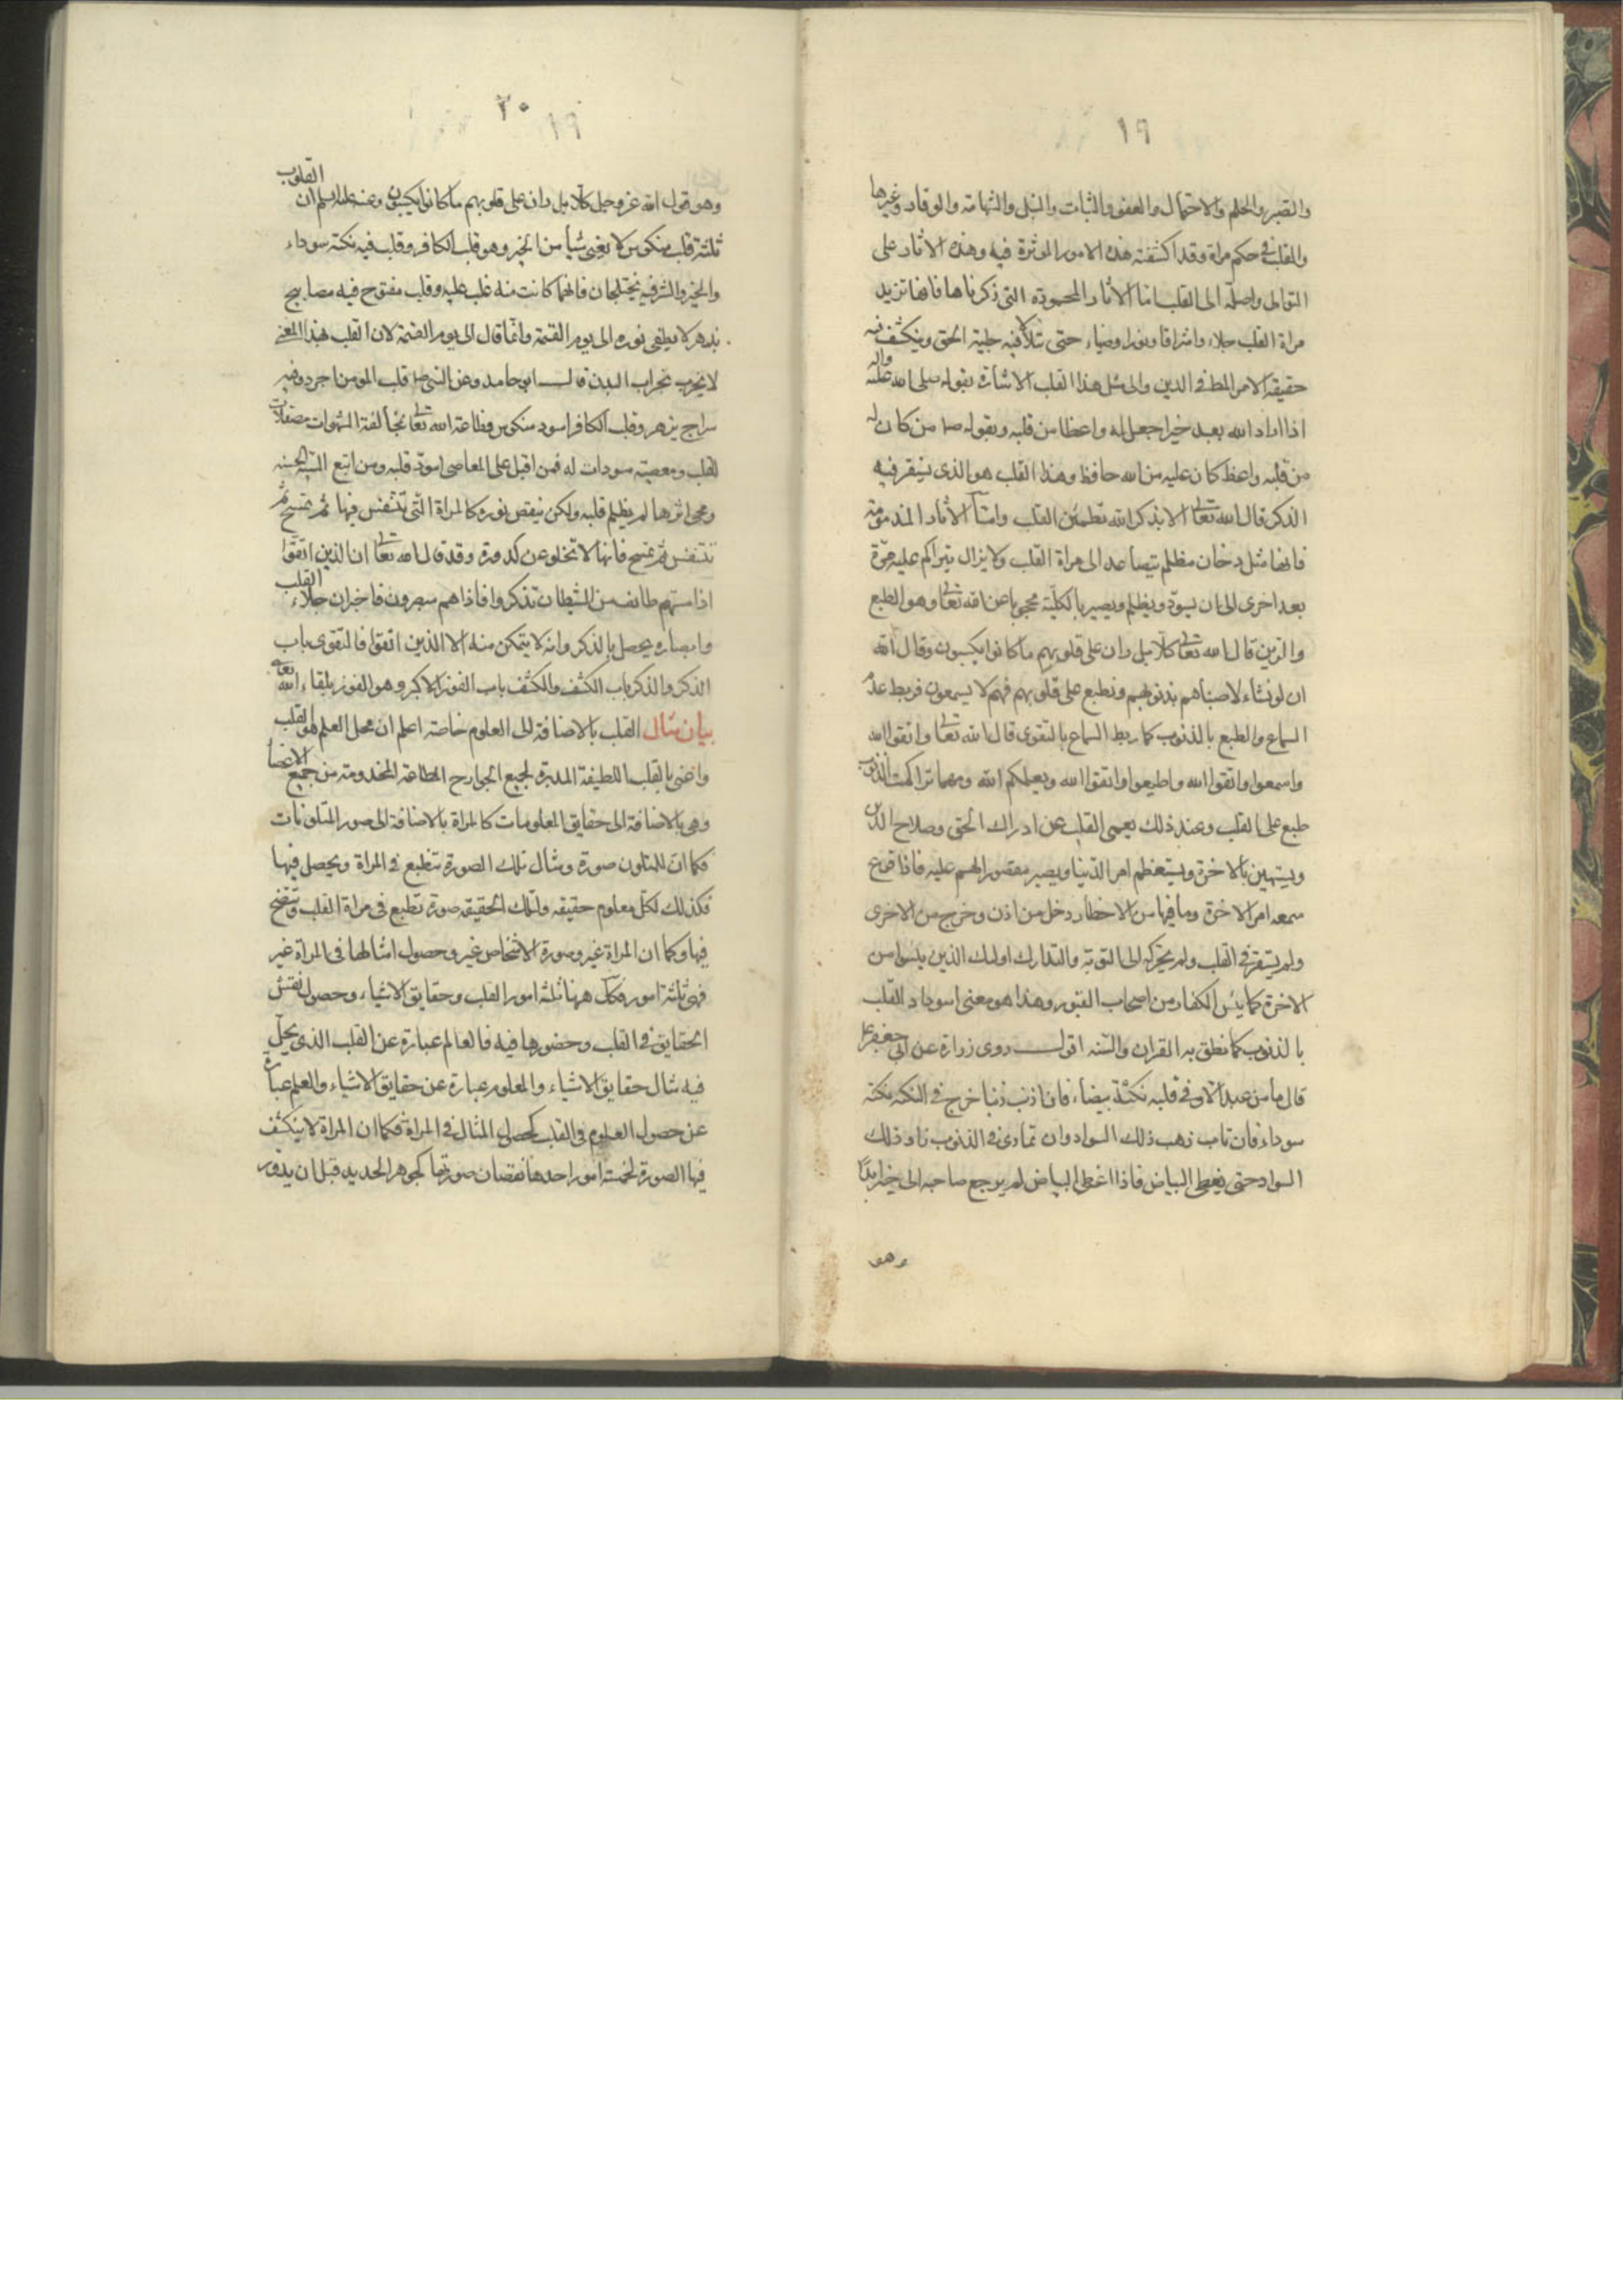 ١٩
والصبر والحلم والاحتمال والعفو والثبات والنبل والشهامة والوقار وغيرها
والقلب في حكم مراة وقد اكتنفته هذه الامور الموثرة فيه وهذه الاثار على
التوالى واصلة الى القلب اما الاثار المحمودة التى ذكرناها فانها تزيد
مراة القلب جلاء واشراقا ونورا وضياء حتى يتلألأ فيه جلية الحق وينكشف فيه
حقيقة الامر المط في الدين والى مثل هذا القلب الاشارة بقوله صلى الله عليه واله
اذا اراد الله بعبد خيرا جعل له واعظا من قلبه وبقوله ص من كان له
من قلبه واعظ كان عليه من الله حافظ وهذا القلب هو الذى يستقر فيه
الذكر قال الله تعالى الا بذكر الله تطمئن القلب وامّا الاثار المذمومة
فانها مثل دخان مظلم يتصاعد الى مراة القلب ولا يزال يتراكم عليه مرّة
بعد اخرى الى ان يسودّ ويظلم ويصير بالكليّة محجوبا عن الله تعالى وهو الطبع
والرين قال الله تعالى كلّا بل ران على قلوبهم ما كانوا يكسبون وقال الله
ان لو نشاء لاصبناهم بذنوبهم ونطبع على قلوبهم فهم لا يسمعون فربط عدم
السماع والطبع بالذنوب كما ربط السماع بالتقوى قال الله تعالى واتقوا الله
واسمعوا واتقوا الله واطيعوا واتقوا الله ويعلمكم الله ومهما تراكمت الذنوب
طبع على القلب وعند ذلك يعمى القلب عن ادراك الحق وصلاح الدين
ويستهين بالاخرة ويستعظم امر الدّنيا ويصير مقصور الهم عليه فاذا قرع
سمعه امر الاخرة وما فيها من الاخطار دخل من اذن وخرج من الاخرى
ولم يستقر في القلب ولم يحركه الى التوبة والتدارك اولئك الذين يئسوا من
الاخرة كما يئس الكفار من اصحاب القبور وهذا هو معنى اسوداد القلب
بالذنوب كما نطق به القران والسّنه اقول روى زرارة عن ابى جعفر ع
قال ما من عبد الا وفي قلبه نكتة بيضاء فان اذنب ذنبا خرج في النكته نكتة
سوداء فان تاب ذهب ذلك السواد وان تمادى في الذنوب زاد ذلك
السواد حتى يغطى البياض فاذا غطى البياض لم يرجع صاحبه الى خير ابدًا
وهو
٢٠
١٩
وهو قول الله عز وجل كلّا بل ران على قلوبهم ما كانوا يكسبون وعنه عليه السلم ان القلوب
ثلثة قلب منكوس لا يعى شيأ من الخير وهو قلب الكافر وقلب فيه نكتة سوداء
والخير والشر فيه يختلجان فايهما كانت منه غلب عليه وقلب مفتوح فيه مصابيح
يزهر لا يطفى نوره الى يوم القيمة وانّما قال الى يوم القيمة لان القلب بهذا المعنى
لا يخرب بخراب البدن قال ابو حامد وعن النبى ص قلب المومن اجرد وفيه
سراج يزهر وقلب الكافر اسود منكوس فطاعة الله تعالى بمخالفة الشهوات مصقلات
للقلب ومعصيته مسودات له فمن اقبل على المعاصى اسودّ قلبه ومن اتبع السيئة الحسنة
ومحى اثرها لم يظلم قلبه ولكن ينقص نوره كالمراة الّتى يتنفس فيها ثم يمسح ثم
يتنفس ثم يمسح فانها لا تخلو عن كدورة وقد قال الله تعالى ان الذين اتقوا
اذا مسهم طائف من الشيطان تذكروا فاذا هم مبصرون فاخبر ان جلاء القلب
وابصاره يحصل بالذكر وانه لا يتمكن منه الا الذين اتقوا فالتقوى باب
الذكر والذكر باب الكشف والكشف باب الفوز الاكبر وهو الفوز بلقاء الله تعالى
بيان مثال القلب بالاضافة الى العلوم خاصة اعلم ان محل العلم هو القلب
واعنى بالقلب اللطيفة المدبرة لجميع الجوارح المطاعة المخدومة من جميع الاعضا
وهي بالاضافة الى حقايق المعلومات كالمراة بالاضافة الى صور المتلونات
فكما ان للمتلون صورة ومثال تلك الصورة ينطبع في المراة ويحصل فيها
فكذلك لكل معلوم حقيقة ولتلك الحقيقة صورة تنطبع في مراة القلب وتتضح
فيها وكما ان المراة غير وصورة الاشخاص غير وحصول امثالها فى المراة غير
فهى ثلثة امور فكك ههنا ثلثة امور القلب وحقايق الاشياء وحصول نفس
الحقايق في القلب وحضورها فيه فالعالم عبارة عن القلب الذى يحلّ
فيه مثال حقايق الاشياء والمعلوم عبارة عن حقايق الاشياء والعلم عبارة
عن حصول العلوم في القلب كحصول المثال في المراة فكما ان المراة لا ينكشف
فيها الصورة لخمسة امور احدها نقصان صورتها كجوهر الحديد قبل ان يدور